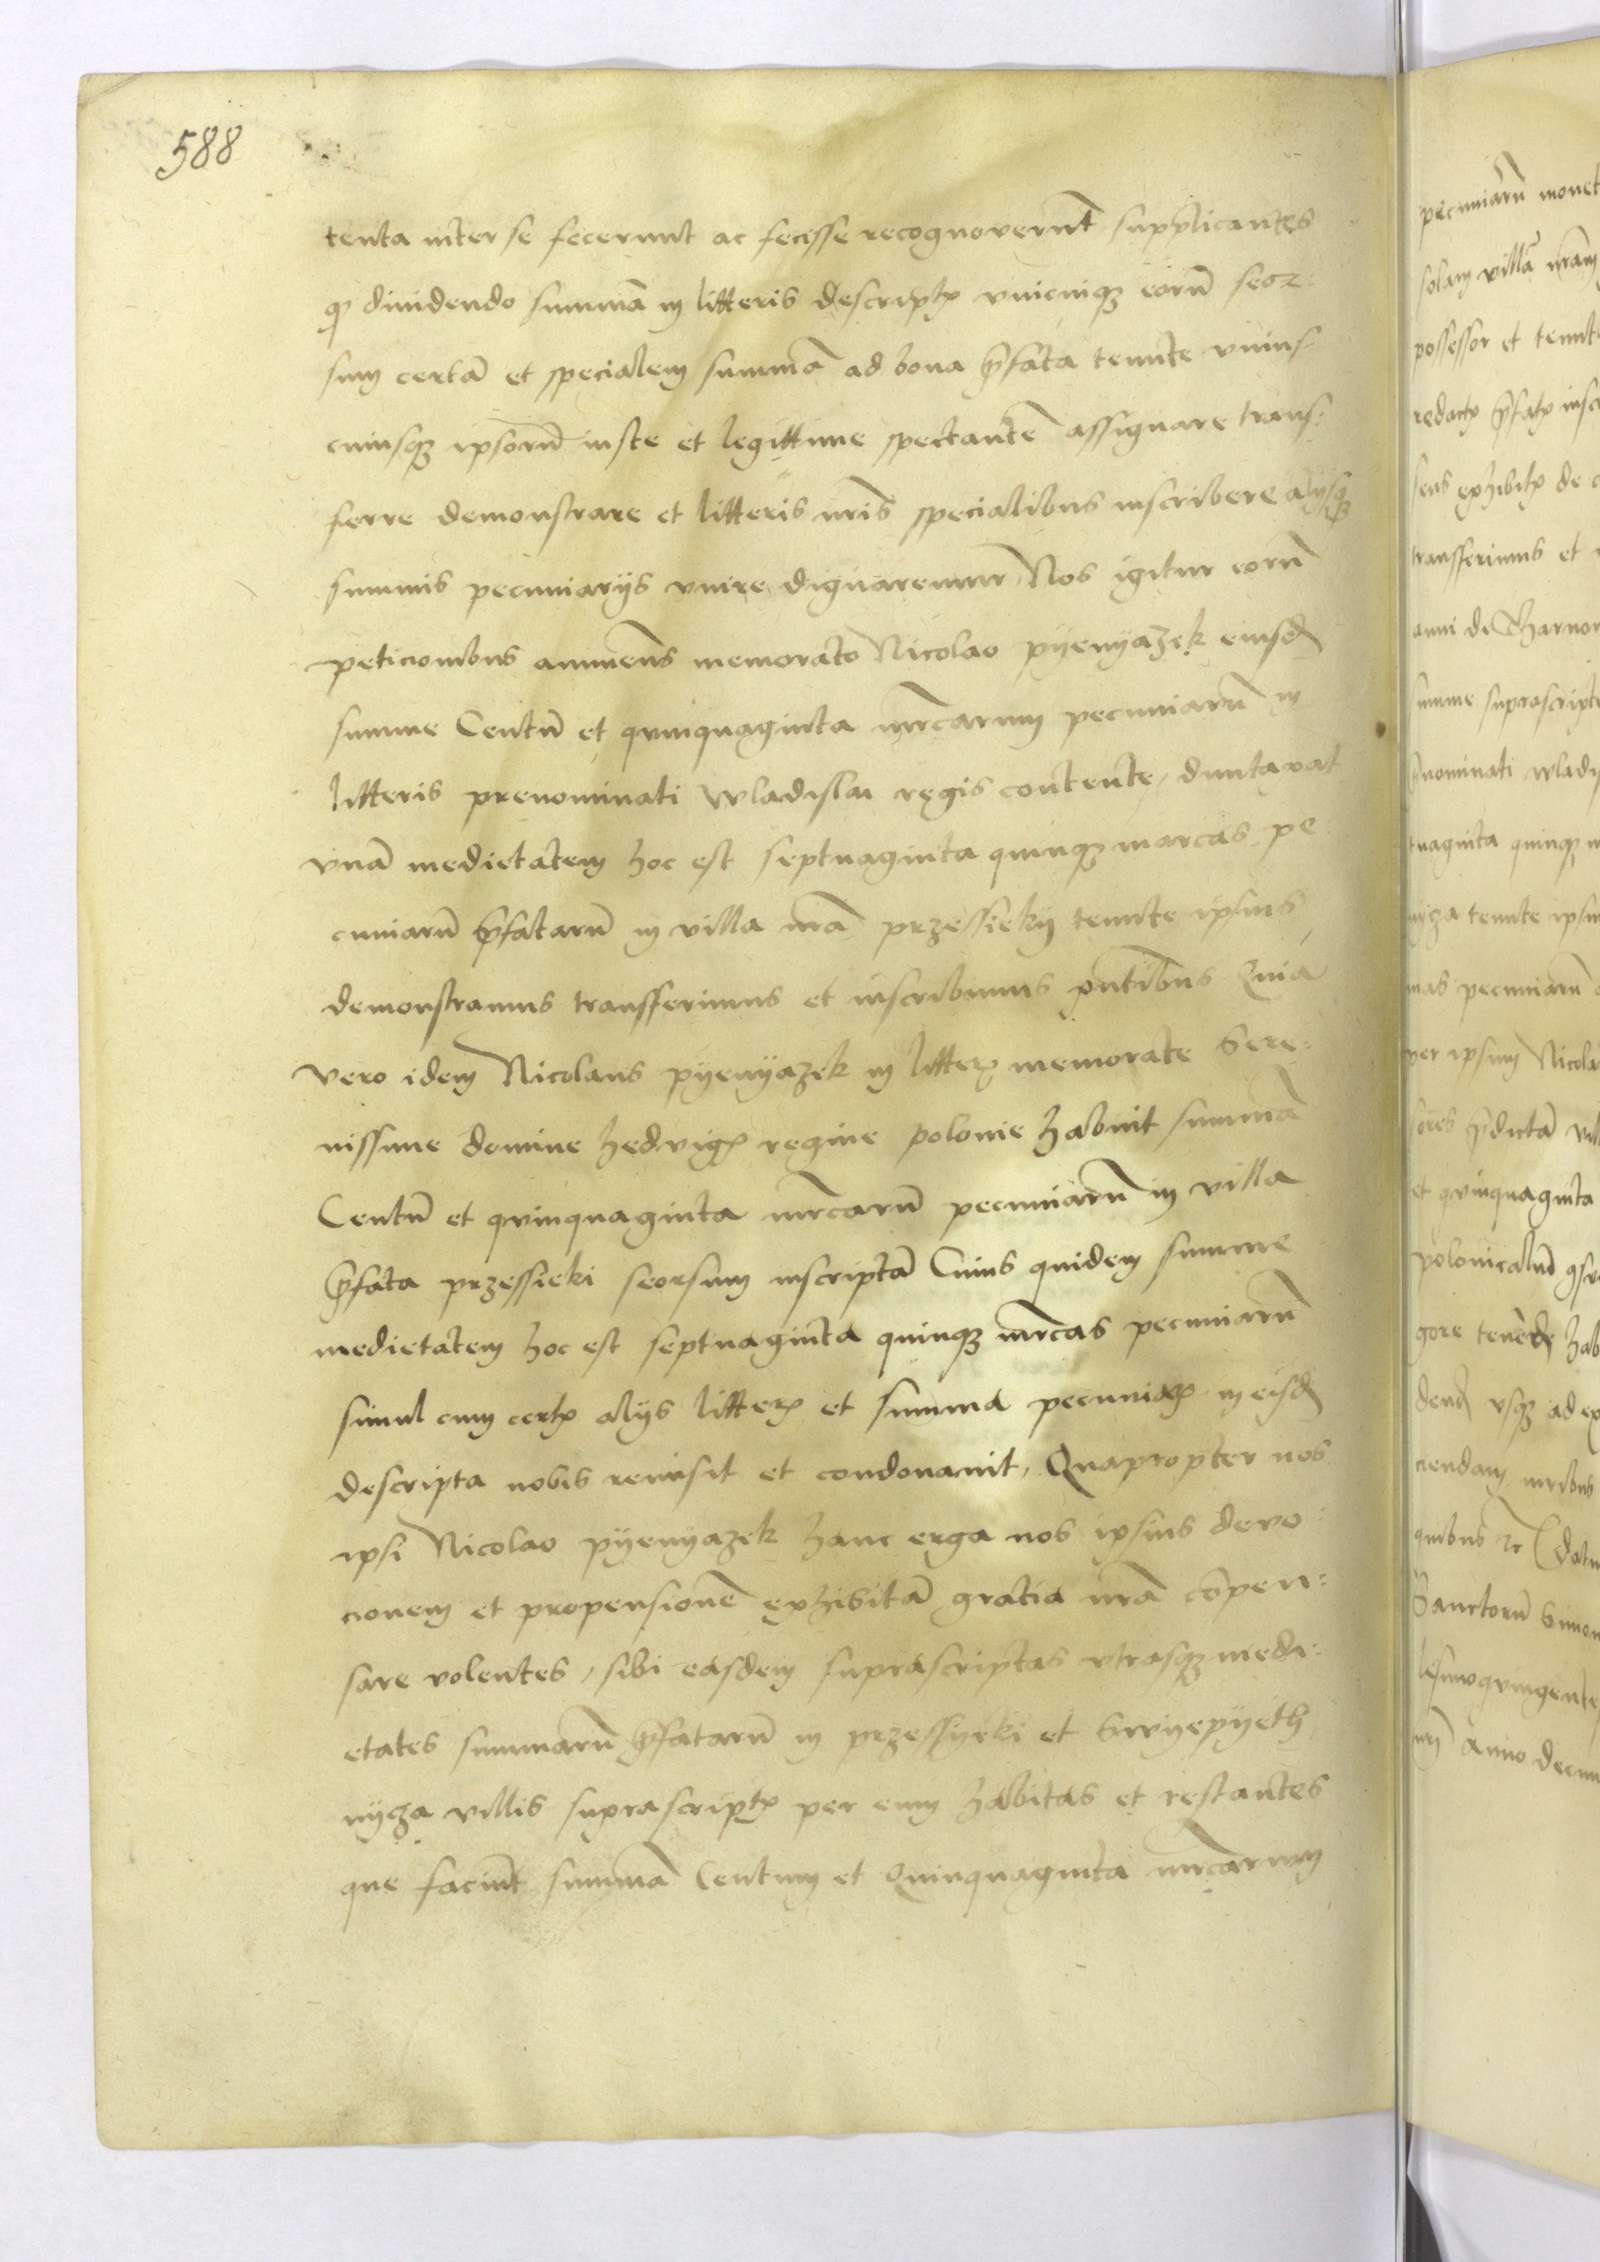 588
tenta inter se fecerunt ac fecisse recognoverūt supplicantes
qͅ dividendo summā in litteris descriptꝭ vnicuiqꝫ eorū seor:
sum certā et specialem summā ad bona p̄fata tenute vnius:
cuiusqꝫ ipsorū iuste et legittime spectantē assignare trans:
ferre demonstrare et litteris nr̄is specialibus inscribere alijsqꝫ
summis pecuniarijs vnire dignaremur Nos igitur eorū
peticionibus annuens memorato Nicolao pyenyazek eiusd
summe Centū et quinquaginta mr̄carum pecuniarū in
litteris prenominati wladislai regis contente, duntaxat
vnā medietatem hoc est septuaginta quinqꝫ marcas pe
cuniarū p̄fatarū in villa nr̄a przessieky tenute ipsius
demonstramus transferimus et inscribimus pn̄tibus Quia
vero idem Nicolaus pyenyazek in litterꝭ memorate Sere:
nissime domine hedvigꝭ regine polonie habuit summā
Centū et quinquaginta mr̄carū pecuniarū in villa
p̄fata przessieki seorsum inscriptā Cuius quidem summe
medietatem hoc est septuaginta quinqꝫ mr̄cas pecuniarū
simul cum certꝭ alijs litterꝭ et summa pecuniarꝭ in eisd
descripta nobis remisit et condonauit, Quapropter nos
ipsi Nicolao pyenyazek hanc erga nos ipsius devo:
cionem et propensionē exhibitā gratia nr̄a cōpen:
sare volentes, sibi easdem suprascriptas vtrasqꝫ medi:
etates summarū p̄fatarū in przessyeki et Swyepyeth
nycza villis suprascriptꝭ per eum habitas et restantes
que faciūt summā Centum et Quinquaginta mr̄carum
pecuniarū monet
solam villā nr̄am
possessor et tenut
redactꝭ p̄fatꝭ inscr
sens exhibitꝭ de
transferimus et
anni de Tharnow
summe suprascripte
nominati wladis
tuaginta quinqꝫ m
nycza tenute ipsiu
mas pecuniarū
per ipsum Nicola
sores p̄dictā vill
et quinquaginta
polonicaliū
gore tenēde hab
dend vsqꝫ ad ex
ciendam
quibus etc Datu
Sanctorū Simon
lesimoquingente
nr̄i Anno decim